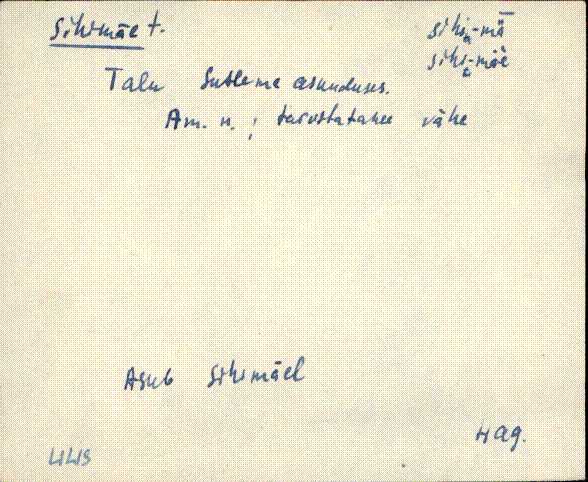 Sihimäe t.
sihi-mǟ
sihi-mäe
Talu Sutlema asunduses.
Am. n.; tarvitatakse vähe
Asub Sihimäel
Hag.